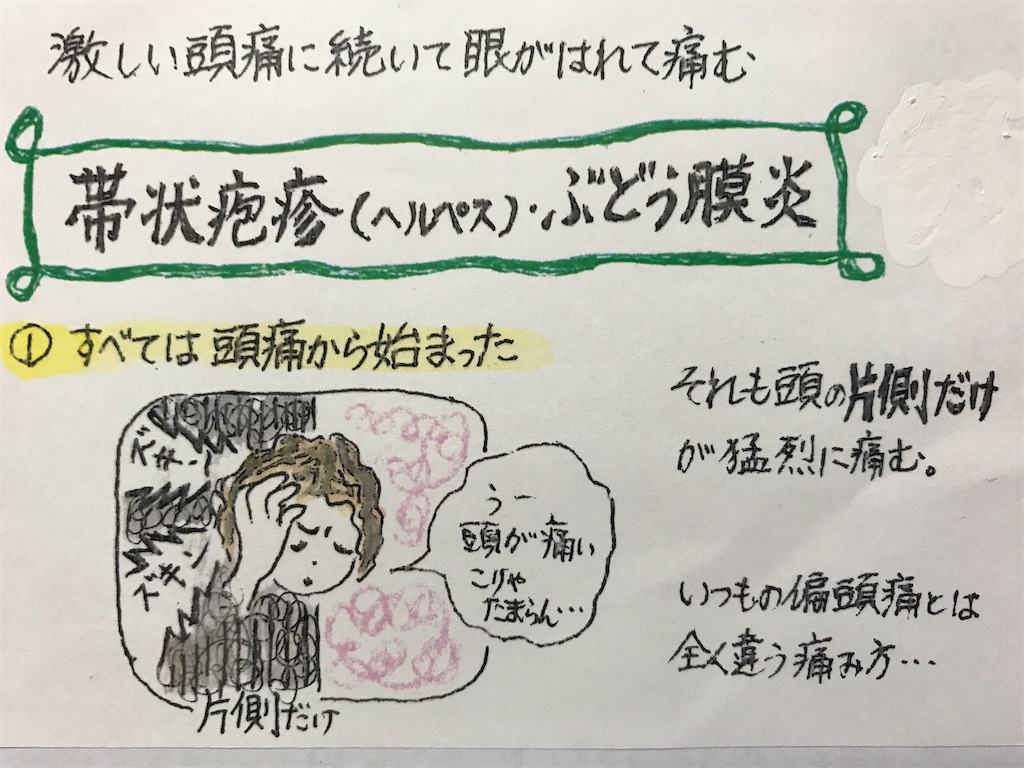 激しい頭痛に続いて眼がはれて痛む
帯状疱疹(ヘルペス)・ぶどう膜炎
① すべては頭痛から始まった
それも頭の片側だけ
が猛烈に痛む。
ズキン
ズキン
うー
頭が痛い
こりゃ
たまらん…
いつもの偏頭痛とは
全く違う痛み方…
片側だけ